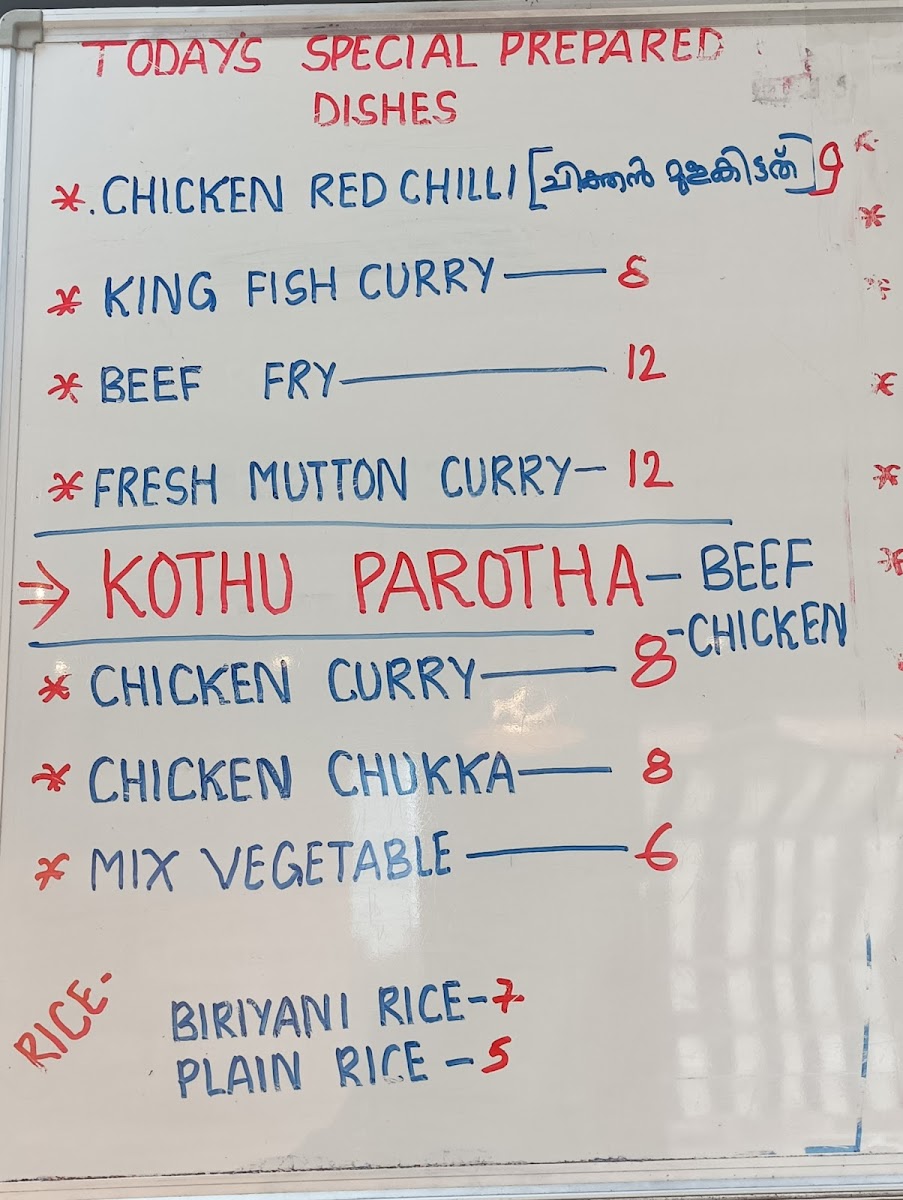 TODAY'S SPECIAL PREPARED
DISHES
*. CHICKEN RED CHILLI [ചിക്കൻ മുളകിട്ടത്] 9
* KING FISH CURRY — 8
* BEEF FRY — 12
* FRESH MUTTON CURRY - 12
⇒ KOTHU PAROTHA - BEEF
- CHICKEN
* CHICKEN CURRY — 8
* CHICKEN CHUKKA — 8
* MIX VEGETABLE — 6
RICE-
BIRIYANI RICE - 7
PLAIN RICE - 5